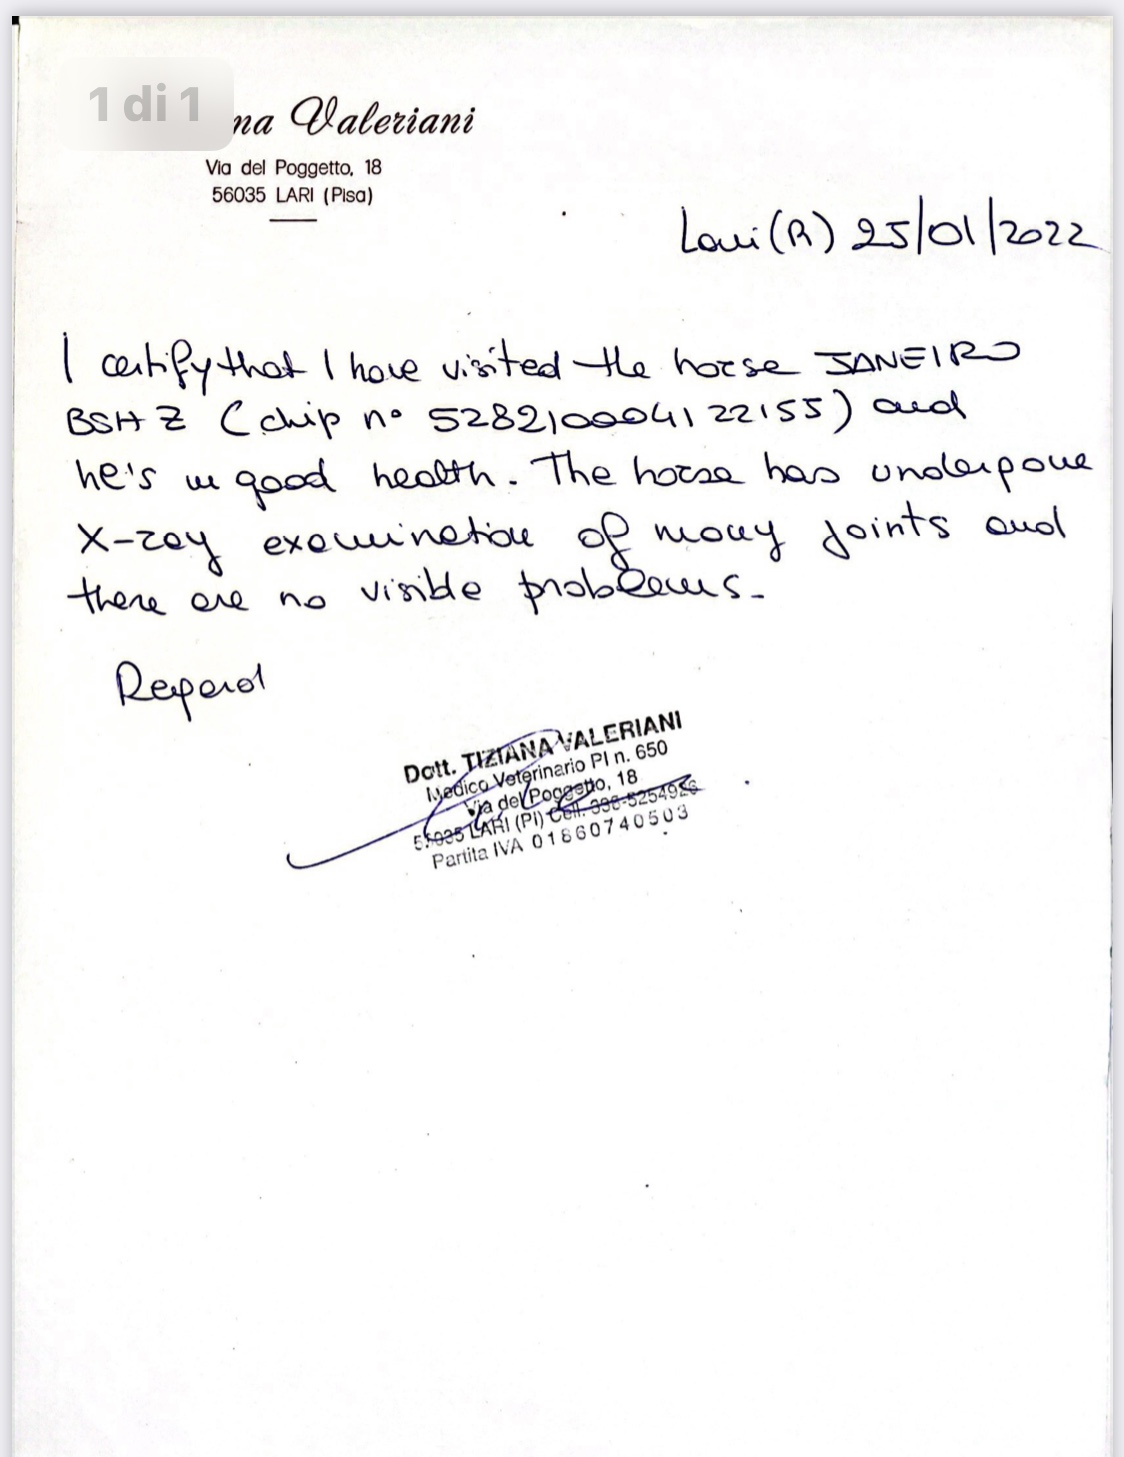 1 di 1
na Valeriani
Via del Poggetto, 18
56035 LARI (Pisa)
Lari (PI) 25/01/2022
I certify that I have visited the horse JANEIRO
BSH Z (chip n° 528210004122155) and
he's in good health. The horse has undergone
X-ray examination of many joints and
there are no visible problems.
Regard
Dott. TIZIANA VALERIANI
Medico Veterinario PI n. 650
Via del Poggetto, 18
56035 LARI (PI) Cell.
Partita IVA 01860740503